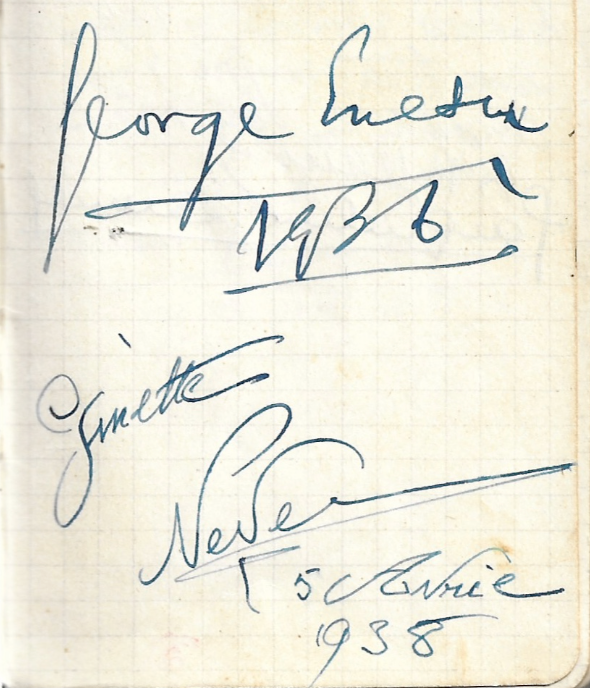 George Enescu
1936
Ginette
Neveu
5 Avril
1938